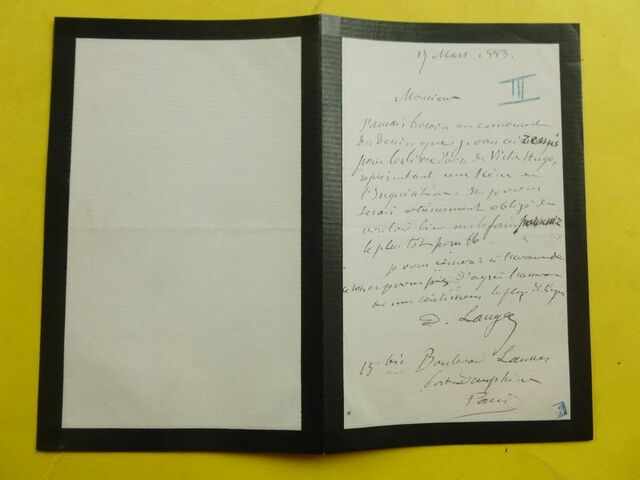 17 Mars 1883.
III
Monsieur
J'aurais besoin en ce moment
du dessin que je vous ai remis
pour le livre d'or de Victor Hugo,
représentant une scène de
l'Inquisition. Je vous
serais extrêmement obligé de
vouloir bien me le faire parvenir
le plus tôt possible
je vous
et vous prie d'agréer l'assurance
de mes sentiments les plus distingués
D. Laugée
15 bis Boulevard Lannes
Porte Dauphine
Paris